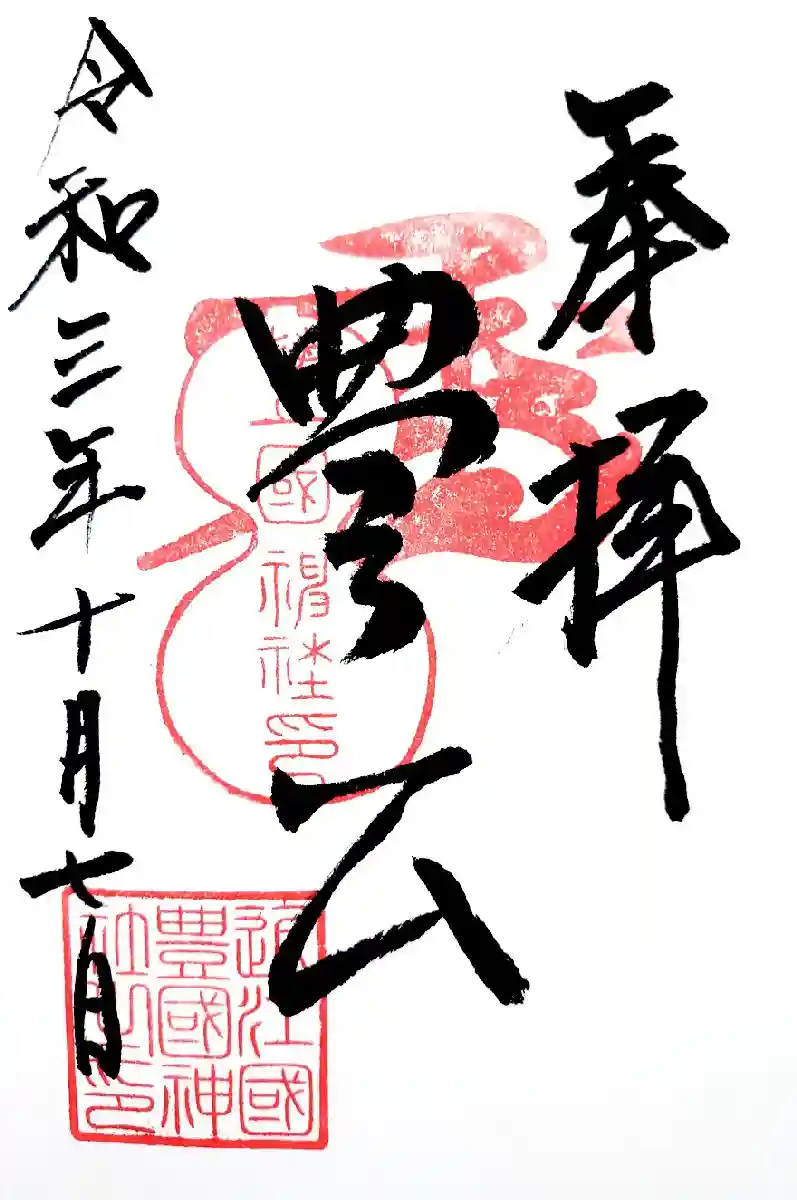 奉拝
豊公
令和三年十月七日
豊國神社印
近江國
豊國神
社之印